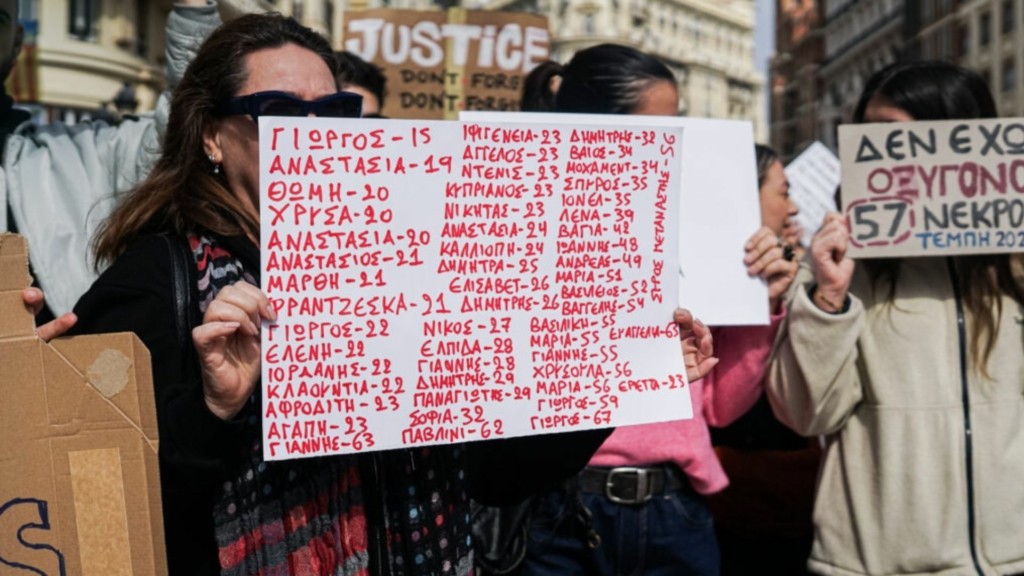 JUSTICE
DON'T FORGE
DON'T FORGE
ΓΙΩΡΓΟΣ-15
ΑΝΑΣΤΑΣΙΑ-19
ΘΩΜΗ-20
ΧΡΥΣΑ-20
ΑΝΑΣΤΑΣΙΑ-20
ΑΝΑΣΤΑΣΙΟΣ-21
ΜΑΡΘΗ-21
ΦΡΑΝΤΖΕΣΚΑ-21
ΓΙΩΡΓΟΣ-22
ΕΛΕΝΗ-22
ΙΟΡΔΑΝΗΣ-22
ΚΛΑΟΥΝΤΙΑ-22
ΑΦΡΟΔΙΤΗ-23
ΑΓΑΠΗ-23
ΓΙΑΝΝΗΣ-63
ΙΦΙΓΕΝΕΙΑ-23
ΑΓΓΕΛΟΣ-23
ΝΤΕΝΙΣ-23
ΚΥΠΡΙΑΝΟΣ-23
ΝΙΚΗΤΑΣ-23
ΑΝΑΣΤΑΣΙΑ-24
ΚΑΛΛΙΟΠΗ-24
ΔΗΜΗΤΡΑ-25
ΕΛΙΣΑΒΕΤ-26
ΔΗΜΗΤΡΗΣ-26
ΝΙΚΟΣ-27
ΕΛΠΙΔΑ-28
ΓΙΑΝΝΗΣ-28
ΔΗΜΗΤΡΗΣ-29
ΠΑΝΑΓΙΩΤΗΣ-29
ΣΟΦΙΑ-32
ΠΑΒΛΙΝΙ-62
ΔΗΜΗΤΡΗΣ-32
ΒΑΙΟΣ-34
ΜΟΧΑΜΕΝΤ-34
ΣΠΥΡΟΣ-35
ΙΟΝΕΛ-35
ΛΕΝΑ-39
ΒΑΓΙΑ-42
ΙΩΑΝΝΗΣ-48
ΑΝΔΡΕΑΣ-49
ΜΑΡΙΑ-51
ΒΑΣΙΛΕΙΟΣ-52
ΒΑΓΓΕΛΗΣ-54
ΒΑΣΙΛΙΚΗ-55
ΜΑΡΙΑ-55
ΕΥΑΓΓΕΛΙΑ-63
ΓΙΑΝΝΗΣ-55
ΧΡΥΣΟΥΛΑ-56
ΜΑΡΙΑ-56 ΕΡΙΕΤΤΑ-23
ΓΙΩΡΓΟΣ-59
ΓΙΩΡΓΟΣ-67
ΣΥΡΟΣ ΜΕΤΑΝΑΣΤΗΣ-
ΔΕΝ ΕΧΩ
ΟΞΥΓΟΝΟ
57 ΝΕΚΡΟ
ΤΕΜΠΗ 202
S